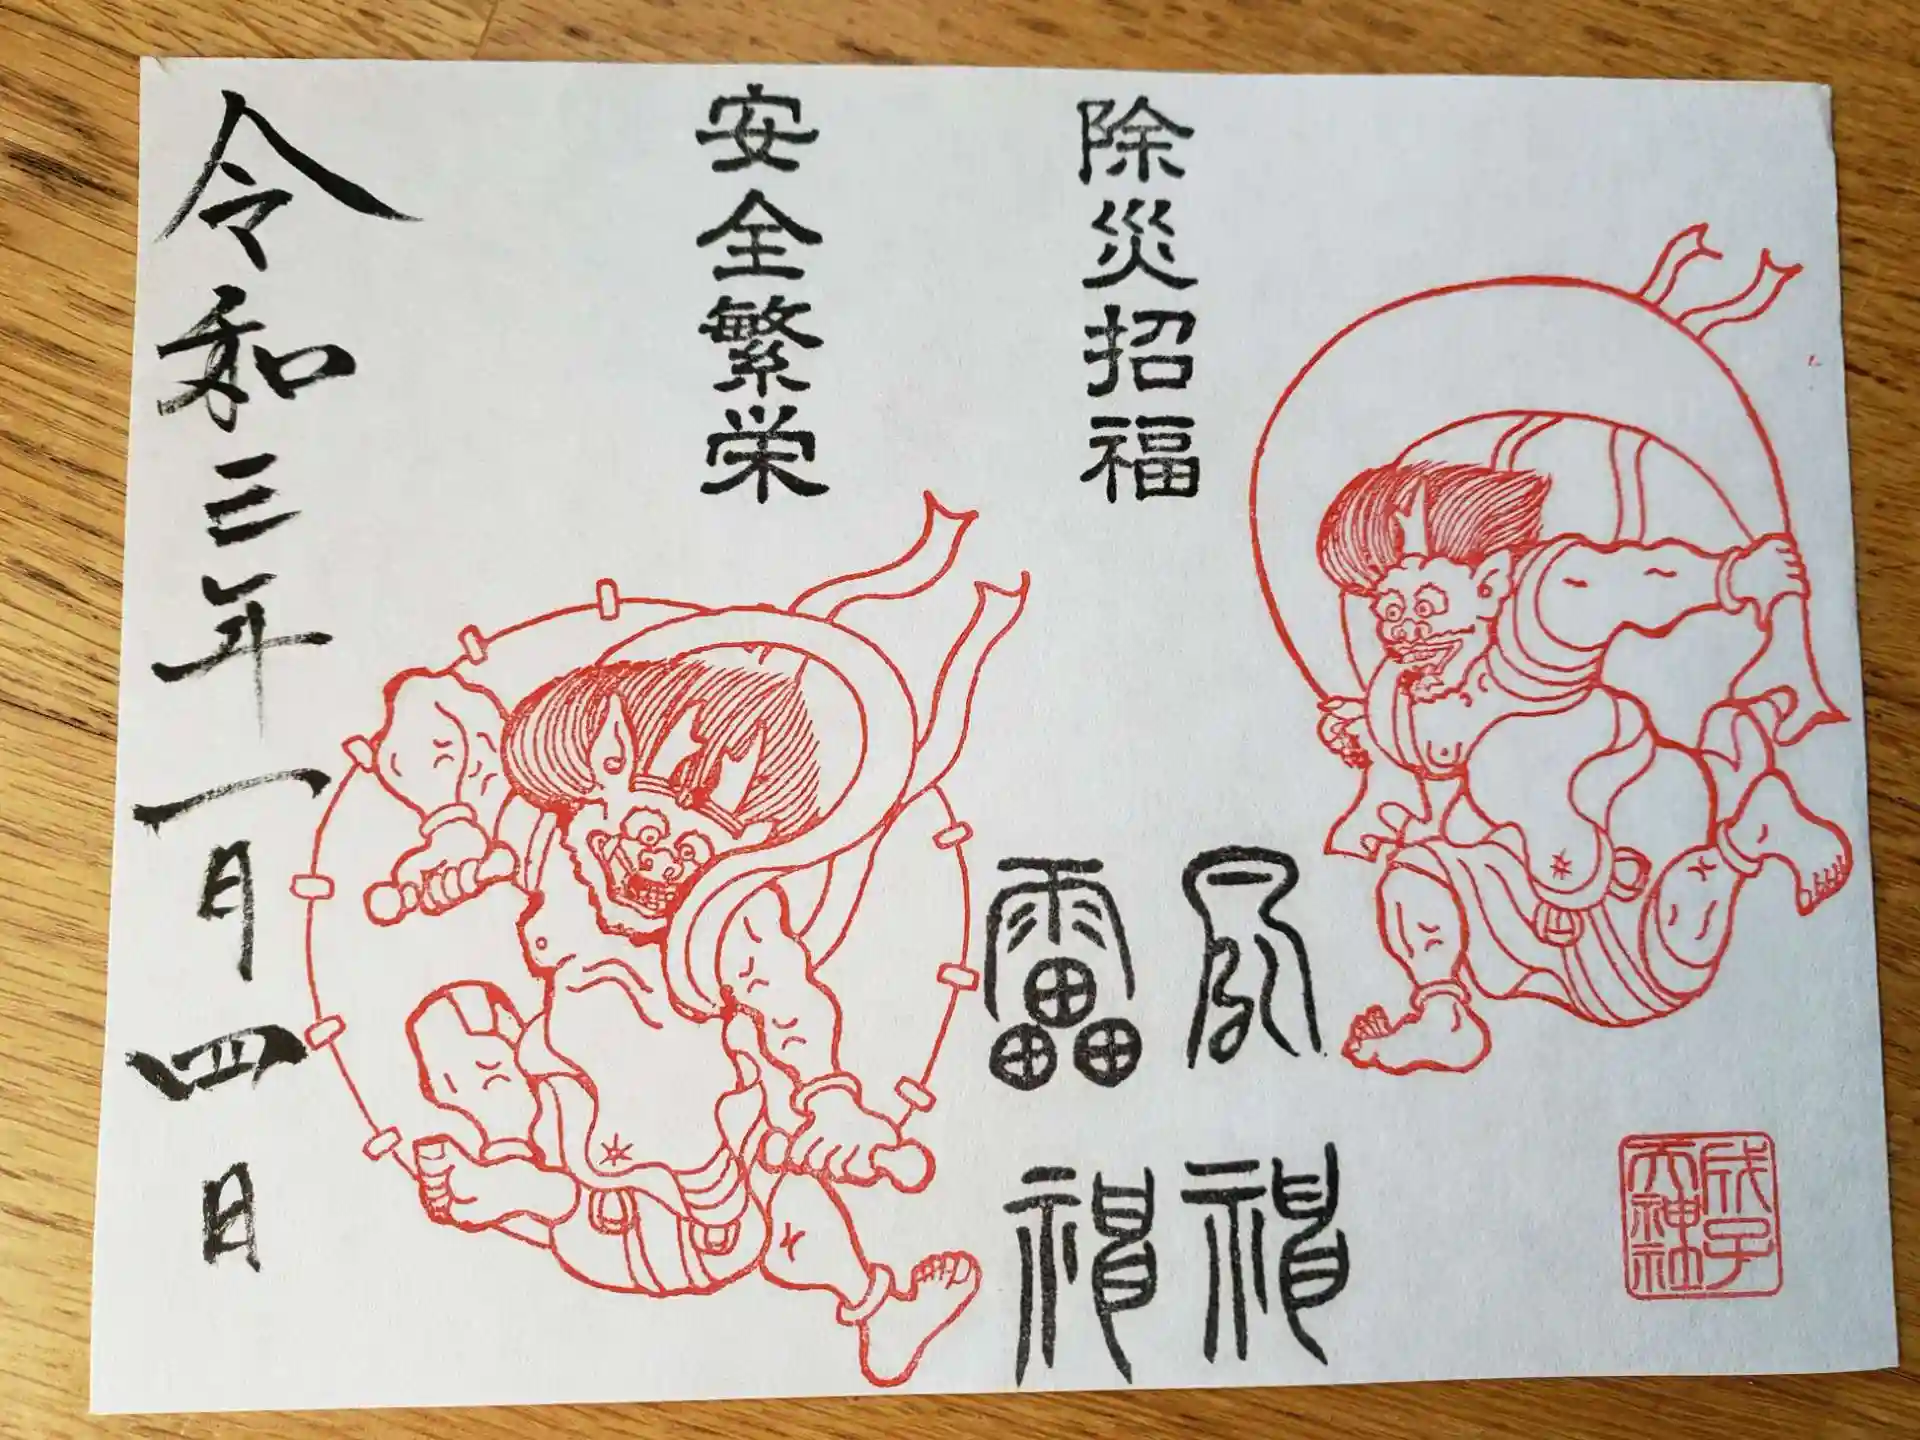 除災招福
安全繁栄
風神
雷神
令和三年一月四日
成子
天神社